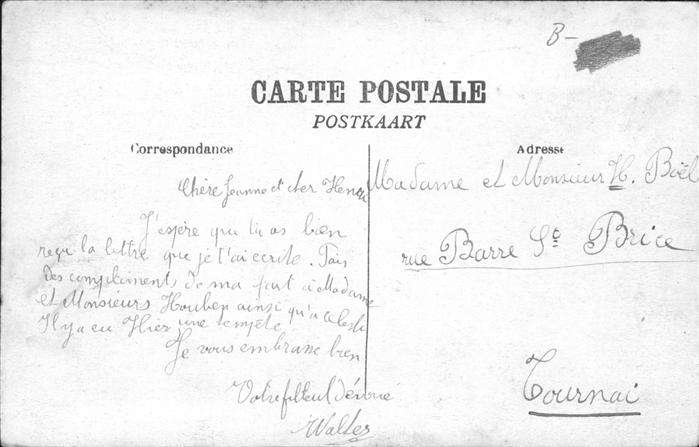 B-
CARTE POSTALE
POSTKAART
Correspondance
Adresse
Chère Jeanne et cher Henri
J'espère que tu as bien
reçu la lettre que je t'ai écrite. Fais
des compliments de ma part à Madame
et Monsieurs Houben ainsi qu'a
Il y a eu Hier une tempête
Je vous embrasse bien
Votre filleul dévoué
Walter
Madame et Monsieur H. Boël
rue Barre St Brice
Tournai